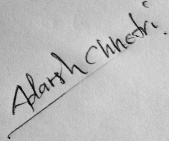 Adarsh Chhetri.